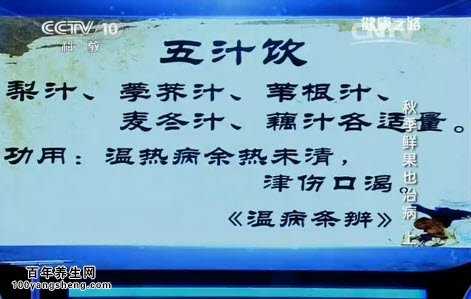 CCTV 10
科教
健康之路
五汁饮
梨汁、荸荠汁、苇根汁、
麦冬汁、藕汁各适量。
功用：温热病余热未清，
津伤口渴。
《温病条辨》
秋季鲜果也治病 上
百年养生网
100yangsheng.com